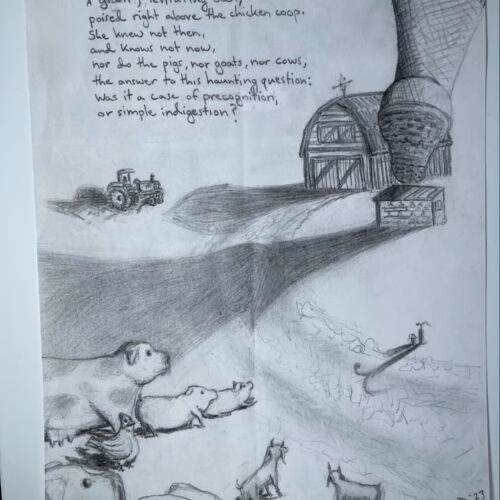 A giant, levitating
poised right above the chicken coop.
She knew not then,
and knows not now,
nor do the pigs, nor goats, nor cows,
the answer to this haunting question:
Was it a case of precognition,
or simple indigestion?
'23